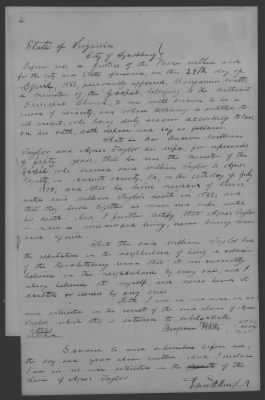 2
State of Virginia
City of Lynchburg
Before me a Justice of the Peace within and
for the city and State aforesaid, on this 29th day of
April, 1853, personally appeared Benjamin
a minister of the Gospel belonging to the Methodist
Episcopal Church, to me well known to be a
person of veracity, and whose ordinary
all credit, who being duly sworn according to law,
on his oath, doth depose and say as follows
That he has known William
Taylor and Agnes Taylor his wife, for upwards
of years, that he was the minister of the
Gospel, who married said William Taylor & Agnes
in county Va, on the day of
and that he lived neighbor of theirs
until said William Taylor's death in and
that they lived together as man and wife until
his death. And I further certify that Agnes Taylor
is now a widow and living, never having
again
That the said William Taylor had
the reputation in the neighborhood of being a soldier
of the Revolutionary war that it was currently
believed in the neighborhood by every one, and I
always believed it myself, and never heard it
doubted or denied by any one
That I am in no wise
interested in the result of the said claim of Agnes
Taylor, which this is intended to substantiate
Benjamin
Sworn to and subscribed before me,
the day and year above written. And I declare
I am in no wise interested in the result of the
claim of Agnes Taylor